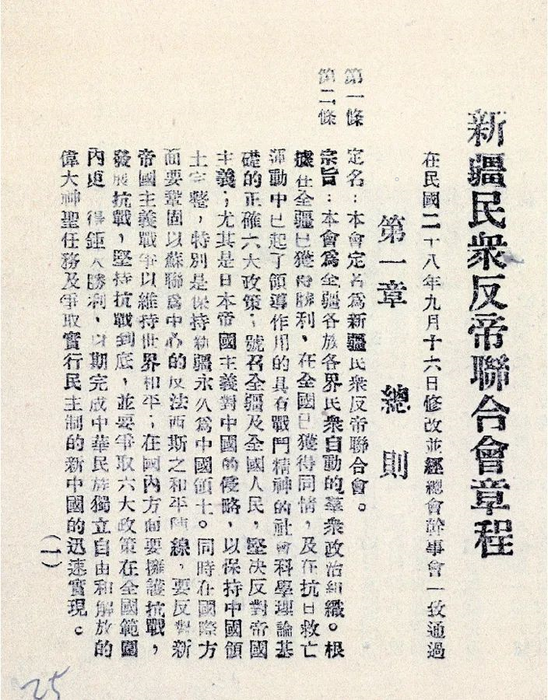 新疆民衆反帝聯合會章程
在民國二十八年九月十六日修改並經總會幹事會一致通過
第一章 總則
第一條 定名:本會定名爲新疆民衆反帝聯合會。
第二條 宗旨:本會爲全疆各族各界民衆自動的羣衆政治組織。根
據在全疆已獲得勝利,在全國已獲得同情,及在抗日救亡
運動中已起了領導作用的具有戰鬥精神的社會科學理論基
礎的正確六大政策,號召全疆及全國人民,堅決反對帝國
主義;尤其是日本帝國主義對中國的侵略,以保持中國領
土完整,特別是保持新疆永久爲中國領土。同時在國際方
面要鞏固以蘇聯爲中心的反法西斯之和平陣線,要反對新
帝國主義戰爭以維持世界和平;在國內方面要擁護抗戰,
發展抗戰,堅持抗戰到底,並要爭取六大政策在全國範圍
內更得鉅大勝利,以期完成中華民族獨立自由和解放的
偉大神聖任務及爭取實行民主制的新中國的迅速實現。
(一)
25